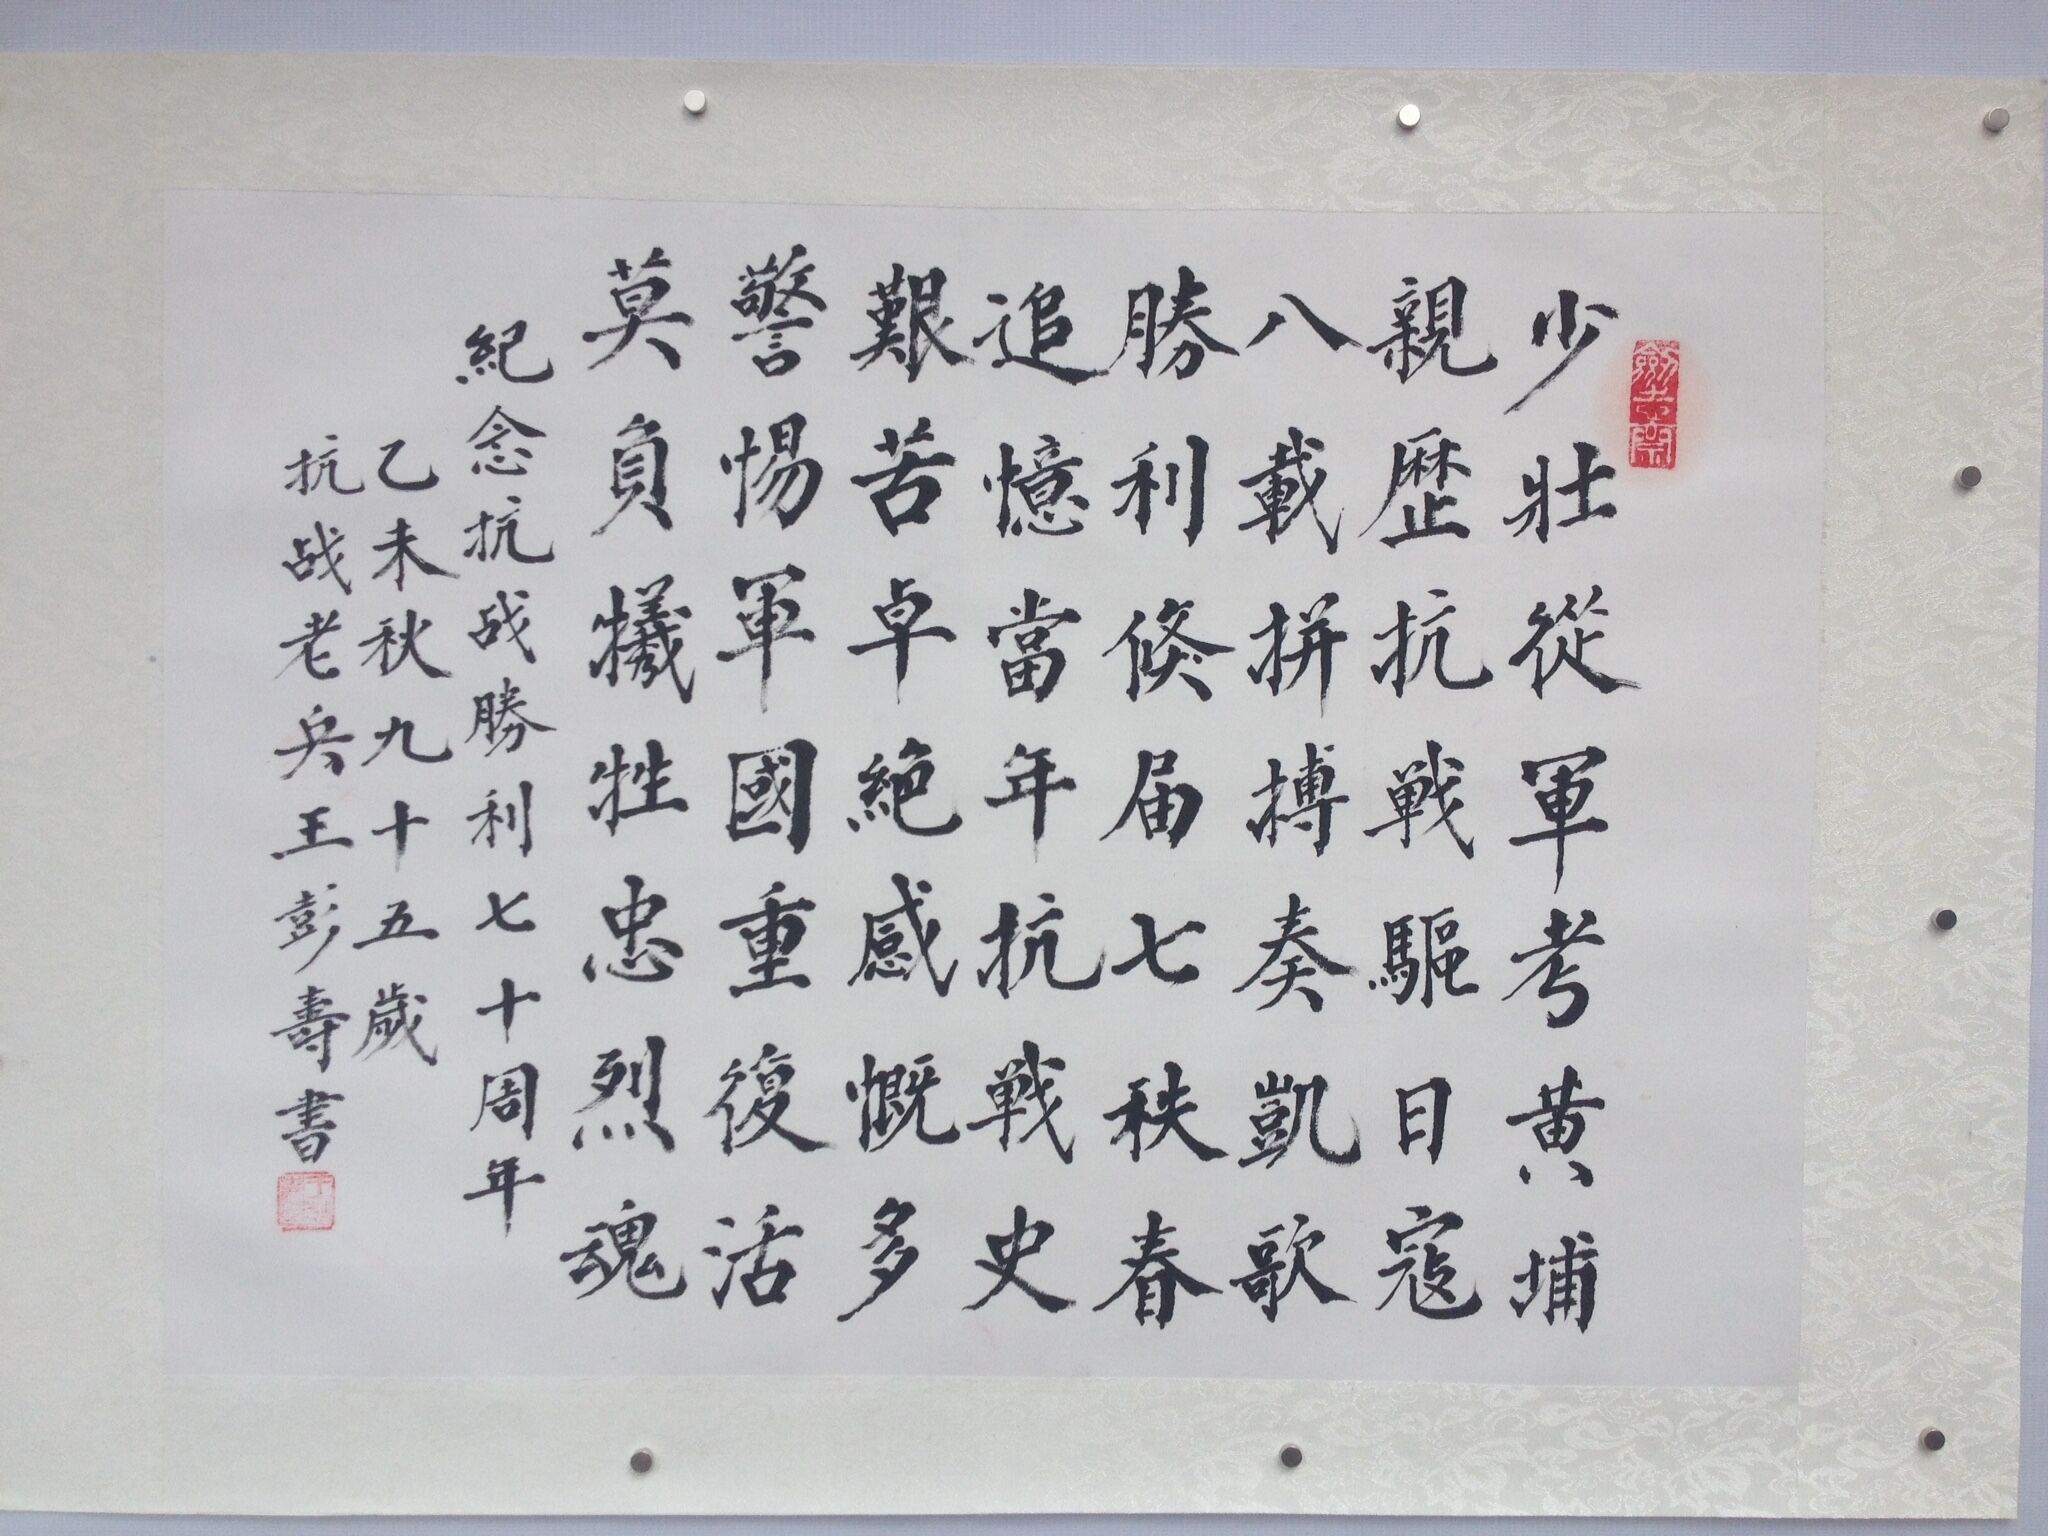 少壯從軍考黄埔
親歷抗戰驅日寇
八載拼搏奏凱歌
勝利倏届七秩春
追憶當年抗戰史
艱苦卓絶感慨多
警惕軍國重復活
莫負犠牲忠烈魂
紀念抗战勝利七十周年
乙未秋九十五歲
抗战老兵王彭壽書